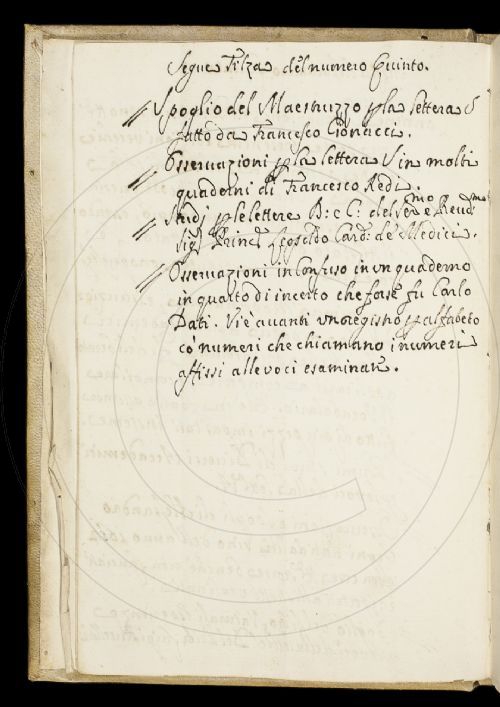 Segue Filza del numero Quinto.
Spoglio del Maestruzzo p la lettera S
fatto da Francesco Cionacci.
Osservazioni p la lettera V in molti
quaderni di Francesco Redi.
Studj p le lettere B: e C: del Sermo e Revdmo
Sigr Princ Leopoldo Card: de' Medici.
Osservazioni in confuso in un quaderno
in quarto di incerto che forse fu Carlo
Dati. Vi è avanti un registro p alfabeto
cò numeri che chiamano i numeri
affissi alle voci esaminate.